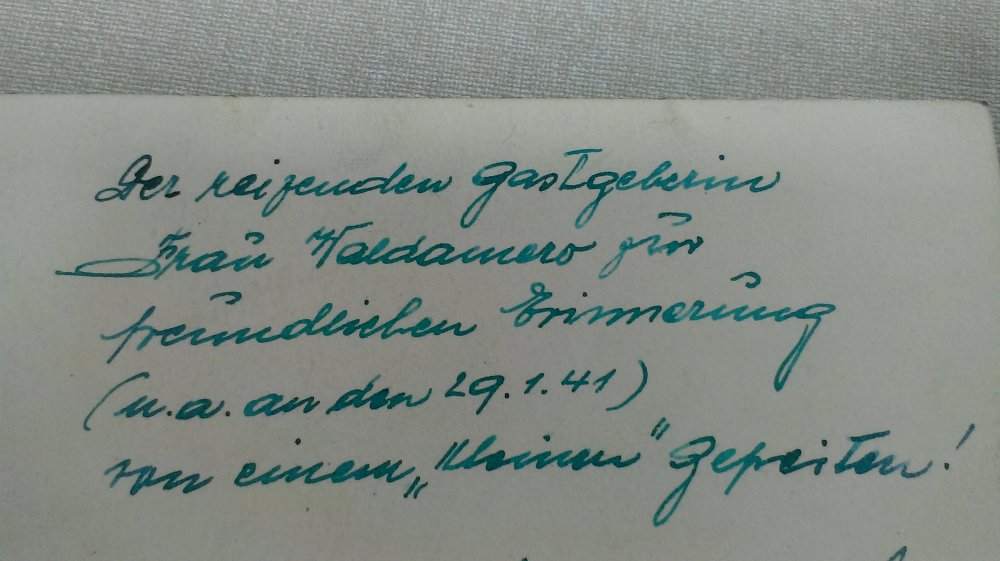 Der reizenden Gastgeberin
Frau Waldamero zur
freundlichen Erinnerung
(u.a. an den 29.1.41)
von einem „kleinen" Gefreiten!